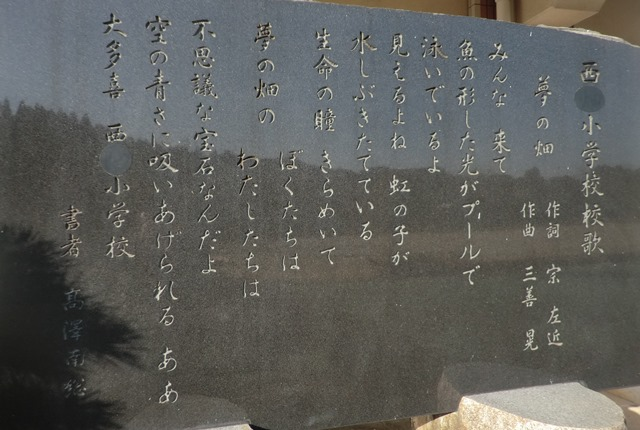 西小学校校歌
夢の畑
作詞 宗 左近
作曲 三善 晃
みんな 来て
魚の形した光がプールで
泳いでいるよ
見えるよね 虹の子が
水しぶきたてている
生命の瞳 きらめいて
ぼくたちは
夢の畑の わたしたちは
不思議な宝石なんだよ
空の青さに吸いあげられる ああ
大多喜 西小学校
書者 髙澤南